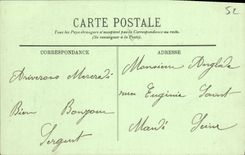 SL
CARTE POSTALE
Tous les Pays étrangers n'acceptent pas la Correspondance au recto.
(Se renseigner à la Poste).
CORRESPONDANCE
ADRESSE
Arriverons Mercredi
Bien Bonjour
Sergent
Monsieur Anglade
rue Eugénie Saint
Mandé Seine